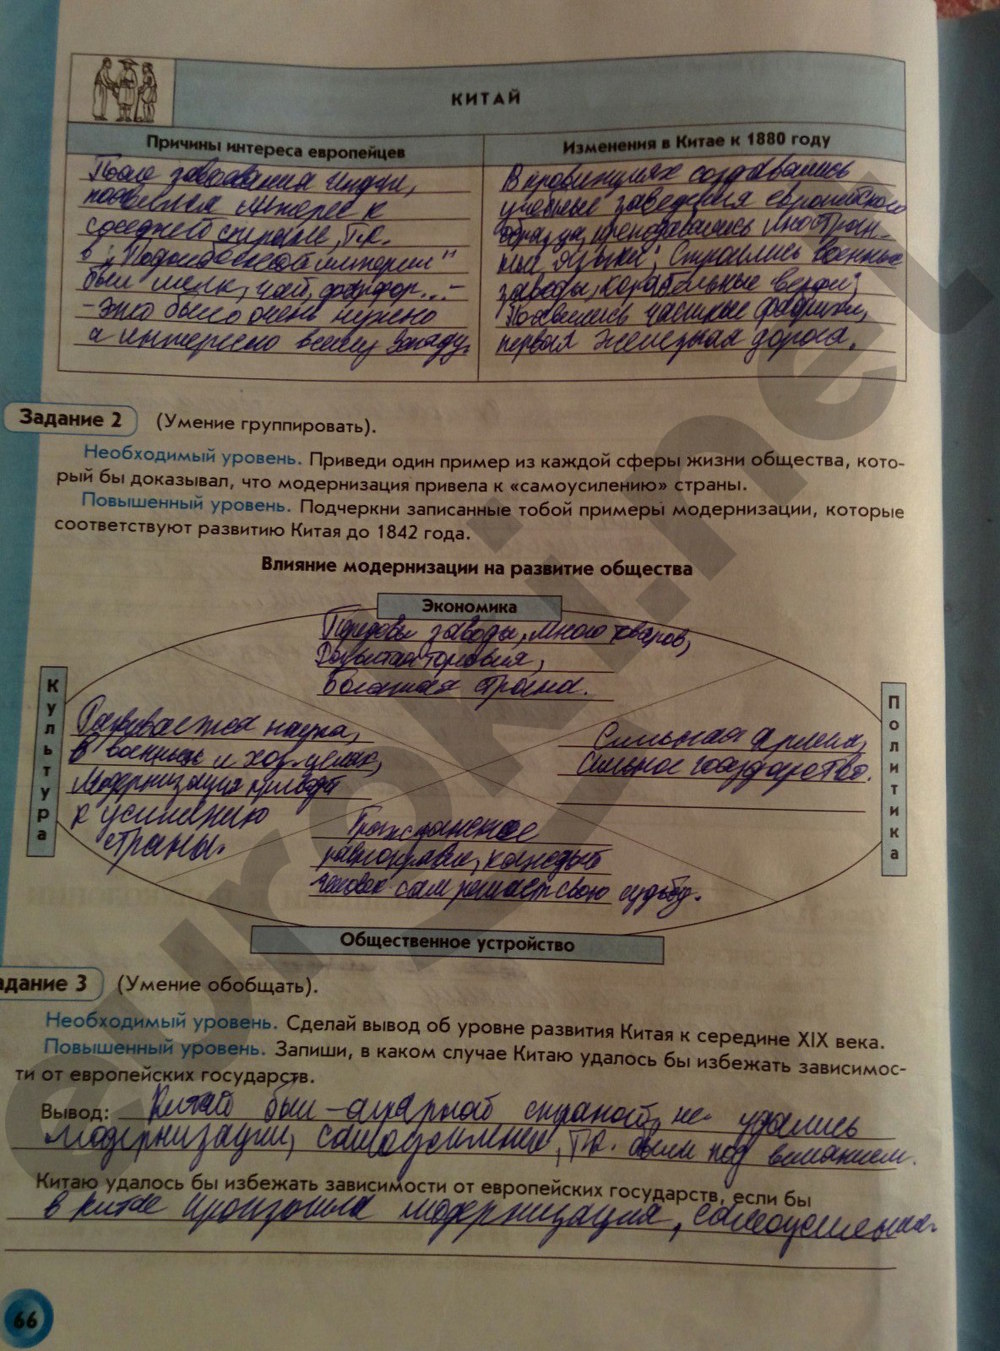 КИТАЙ
Причины интереса европейцев
После завоевания Индии,
появился интерес к
соседней стране, т.к.
в "Поднебесной империи"
был шелк, чай, фарфор...-
- это было очень нужно
и интересно всему Западу.
Изменения в Китае к 1880 году
В провинциях создавались
учебные заведения европейского
образца, преподавались иностран-
ные языки; Строились военные
заводы, корабельные верфи;
Появились частные фабрики,
первая железная дорога.
Задание 2 (Умение группировать).
Необходимый уровень. Приведи один пример из каждой сферы жизни общества, кото-
рый бы доказывал, что модернизация привела к «самоусилению» страны.
Повышенный уровень. Подчеркни записанные тобой примеры модернизации, которые
соответствуют развитию Китая до 1842 года.
Влияние модернизации на развитие общества
Экономика
заводы, много товаров,
Развитая торговля,
Богатая страна.
Культура
Развивается наука,
в военных и хоз. целях,
Модернизация приводит
к усилению
страны.
Политика
Сильная армия,
сильное государство.
Гражданское
равноправие, каждый
человек сам решает свою судьбу.
Общественное устройство
адание 3 (Умение обобщать).
Необходимый уровень. Сделай вывод об уровне развития Китая к середине XIX века.
Повышенный уровень. Запиши, в каком случае Китаю удалось бы избежать зависимос-
ти от европейских государств.
Вывод: Китай был - аграрной страной, не удались
модернизации, самоусиление, т.к. были под
Китаю удалось бы избежать зависимости от европейских государств, если бы
в Китае произошла модернизация,
66
euroki.net